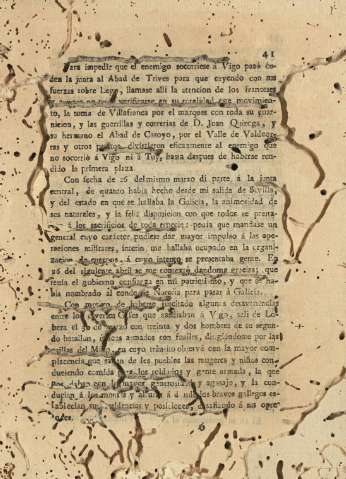 41
Para impedir que el enemigo socorriese á Vigo pasó
den la junta al Abad de Trives para que cayendo con sus
fuerzas sobre Lugo, llamase allí la atencion de los franceses
y aunque no pudo verificarse en su totalidad este movimien-
to, la toma de Villafranca por el marques con toda su guar-
nicion, y las guerrillas y correrias de D. Juan Quiroga, y
su hermano el Abad de Casoyo, por el Valle de Valdeorras
y otros puntos divirtieron eficazmente al enemigo que
no socorrió á Vigo ni á Tuy, hasta despues de haberse ren-
dido la primera plaza.
Con fecha de 26 del mismo marzo di parte, á la junta
central, de quanto habia hecho desde mi salida de Sevilla,
y del estado en que se hallaba la Galicia, la animosidad de
sus naturales, y la feliz disposicion con que todos se presta-
á los sacrificios de toda especie: pedia que mandase un
general cuyo carácter pudiese dar mayor impulso á las ope-
raciones militares, interin me hallaba ocupado en la organi-
zacion de cuerpos, á cuyo intento se presentaba gente. En
26 del siguiente abril se me contextó dandome gracias; que
tenia el gobierno confianza en mi patriotismo, y que se ha-
bia nombrado al conde de Noroña para pasar á Galicia.
Con motivo de haberse suscitado algunas desavenencias
entre los diversos gefes que sitiaban á Vigo, salí de Lo-
bera el 30 de con treinta y dos hombres de su segun-
do batallon, armados con fusiles, dirigiendome por las
orillas del Miño, en cuyo tránsito observé con la mayor com-
placencia que de los pueblos las mugeres y niños con-
duciendo comida los soldados y gente armada, la que
daban con la mayor generosidad y agasajo, y la con-
ducian á los montes y donde los bravos gallegos es-
tablecian su residencia y posiciones,
6